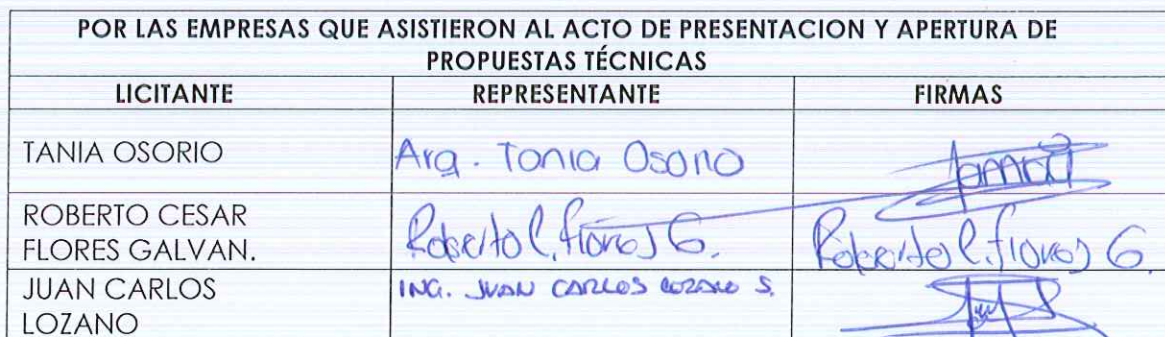 POR LAS EMPRESAS QUE ASISTIERON AL ACTO DE PRESENTACION Y APERTURA DE
PROPUESTAS TÉCNICAS
LICITANTE REPRESENTANTE FIRMAS
TANIA OSORIO Arq. Tania Osorio
ROBERTO CESAR
FLORES GALVAN. Roberto C. Flores G. Roberto C. Flores G
JUAN CARLOS ING. JUAN CARLOS LOZANO S.
LOZANO